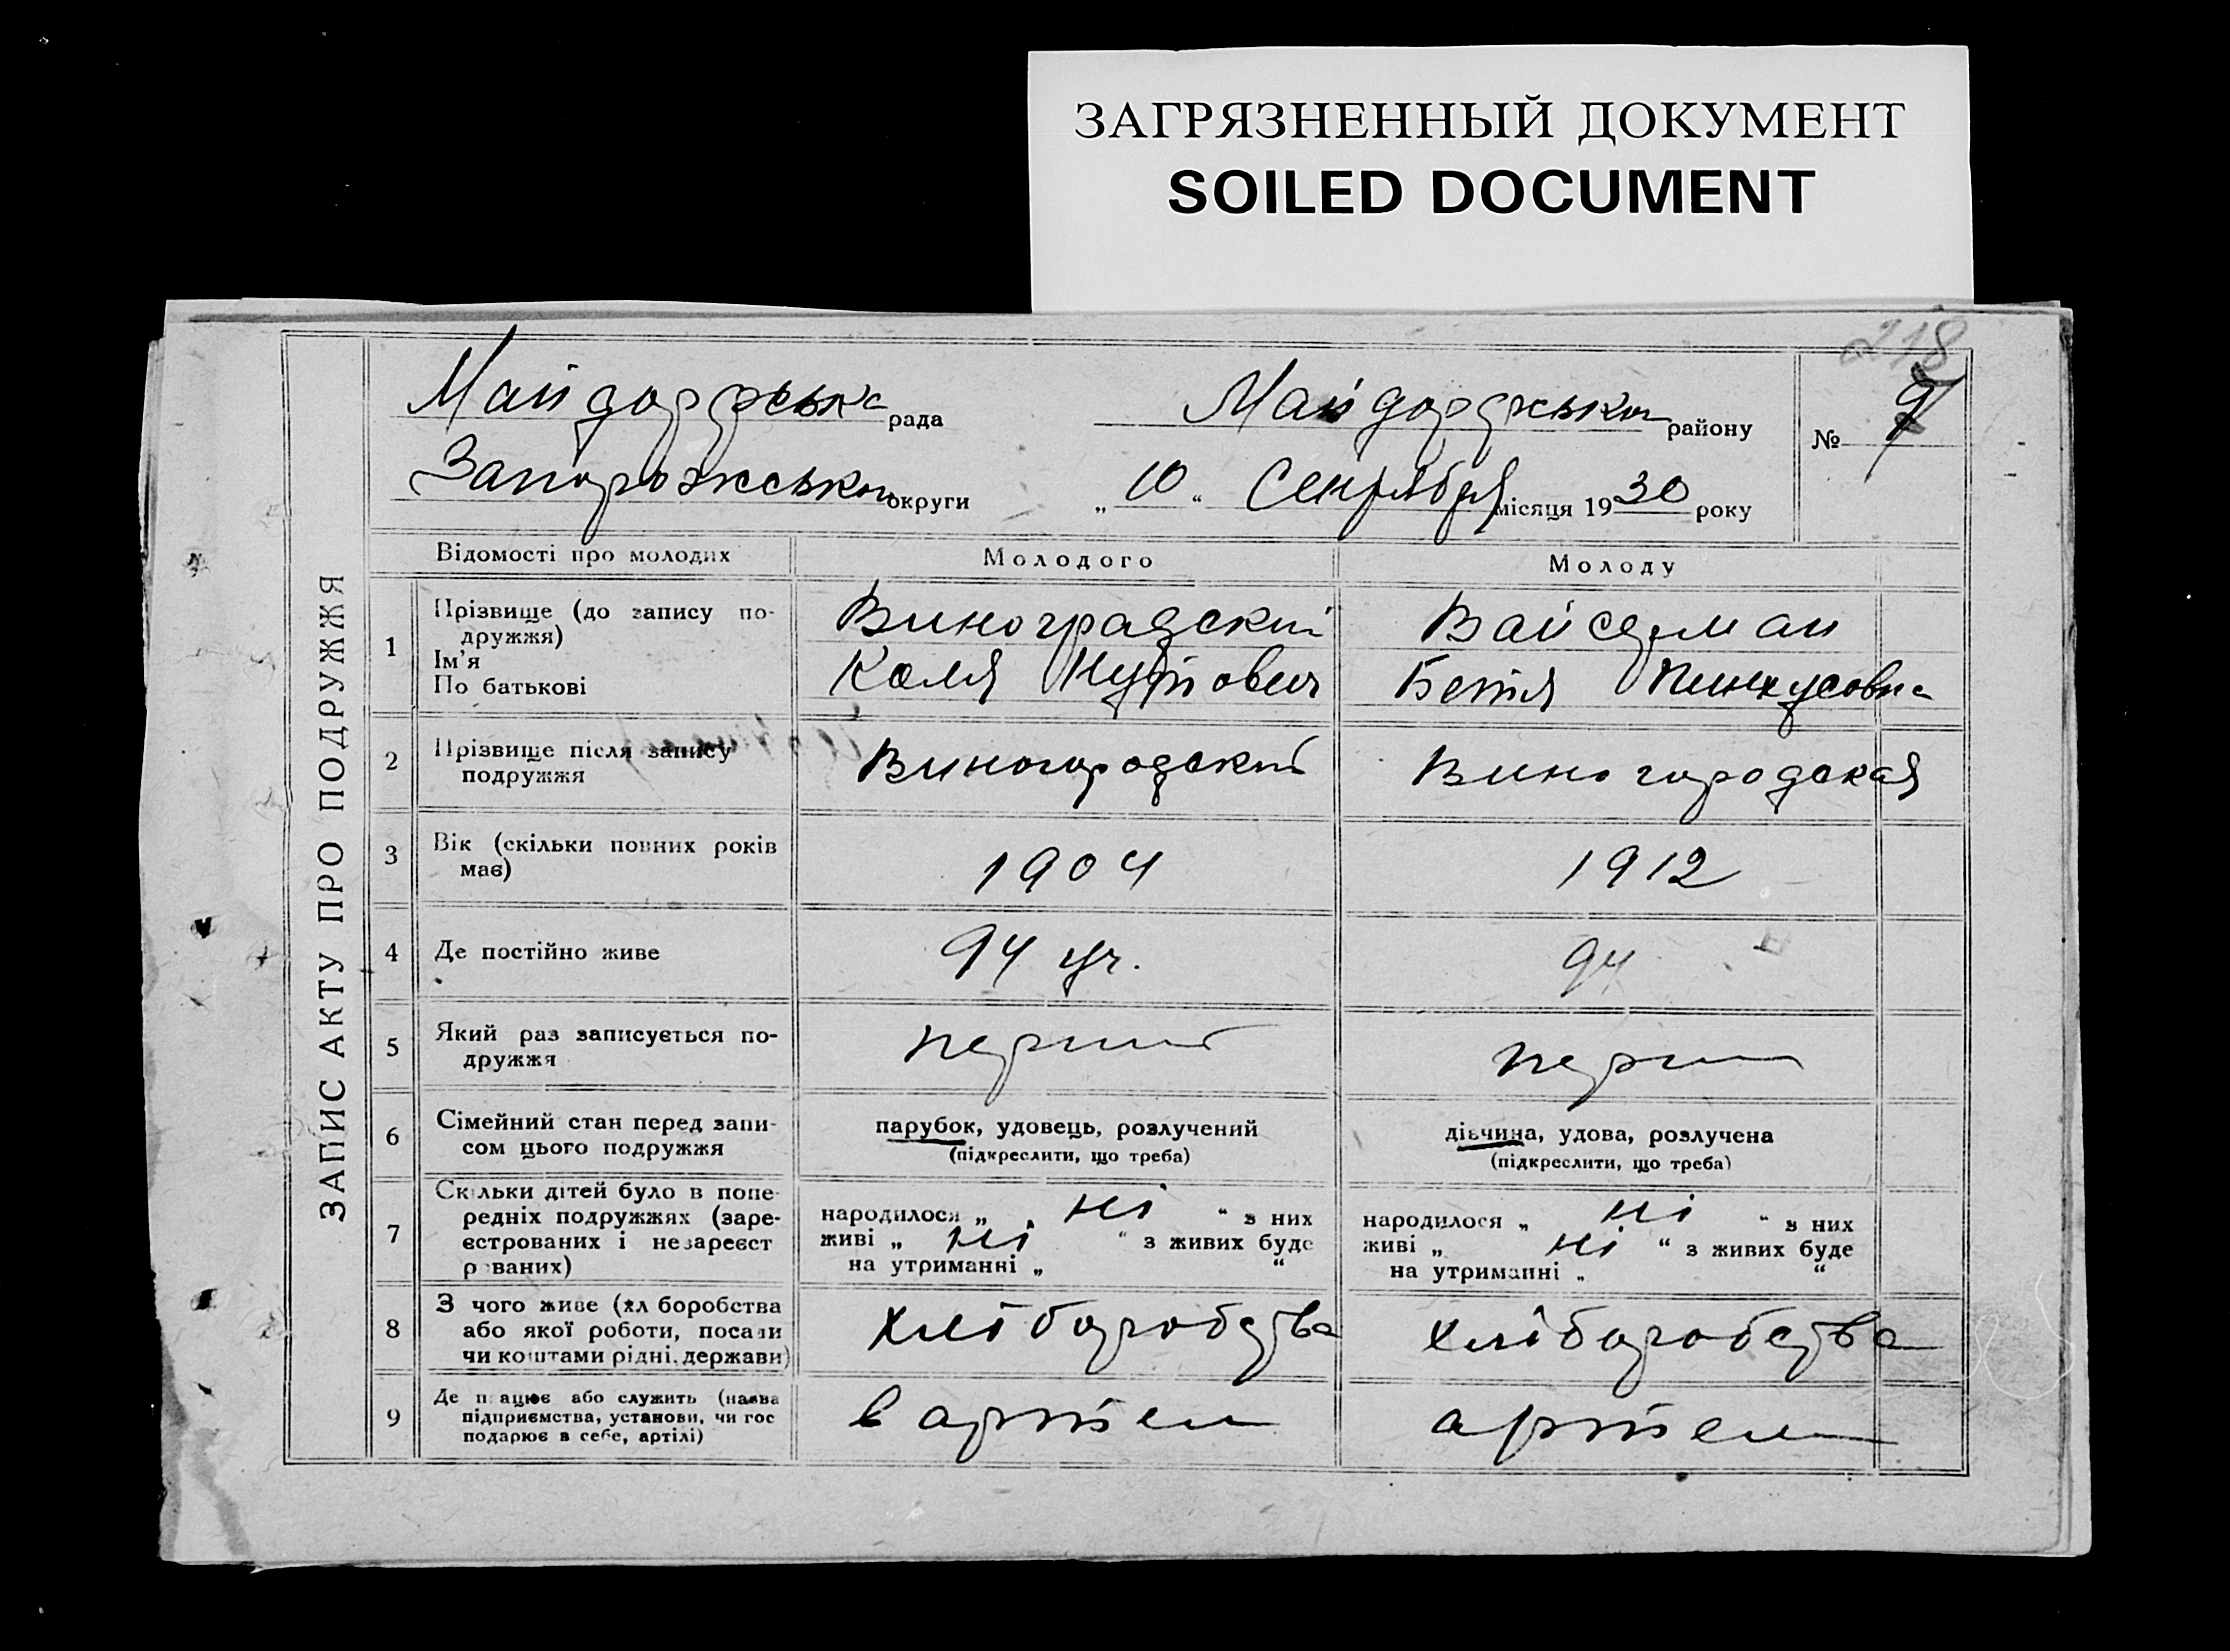 ЗАГРЯЗНЕННЫЙ ДОКУМЕНТ
SOILED DOCUMENT
218
ЗАПИС АКТУ ПРО ПОДРУЖЖЯ
рада
району
№
Запорожської округи
„ 10 “ Сентября місяця 1930 року
Відомості про молодих
Молодого
Молоду
1
Прізвище (до запису по-
дружжя)
Ім'я
По батькові
Виноградский
Коля
Вайсдман
Бетя Пинхусовна
2
Прізвище після запису
подружжя
Виногородский
Виногородская
3
Вік (скільки повних років
має)
1904
1912
4
Де постійно живе
94 уч.
94
5
Який раз записується по-
дружжя
перший
перши
6
Сімейний стан перед запи-
сом цього подружжя
парубок, удовець, розлучений
(підкреслити, що треба)
дівчина, удова, розлучена
(підкреслити, що треба)
7
Скільки дітей було в попе-
редніх подружжях (заре-
єстрованих і незареєст
рованих)
народилося „ ні “ з них
живі „ ні “ з живих буде
на утриманні „ “
народилося „ ні “ з них
живі „ ні “ з живих буде
на утриманні „ “
8
З чого живе (хл боробства
або якої роботи, посади
чи коштами рідні, держави)
хліборобства
хліборобства
9
Де працює або служить (назва
підприємства, установи, чи гос
подарює в себе, артілі)
в артіели
артіели